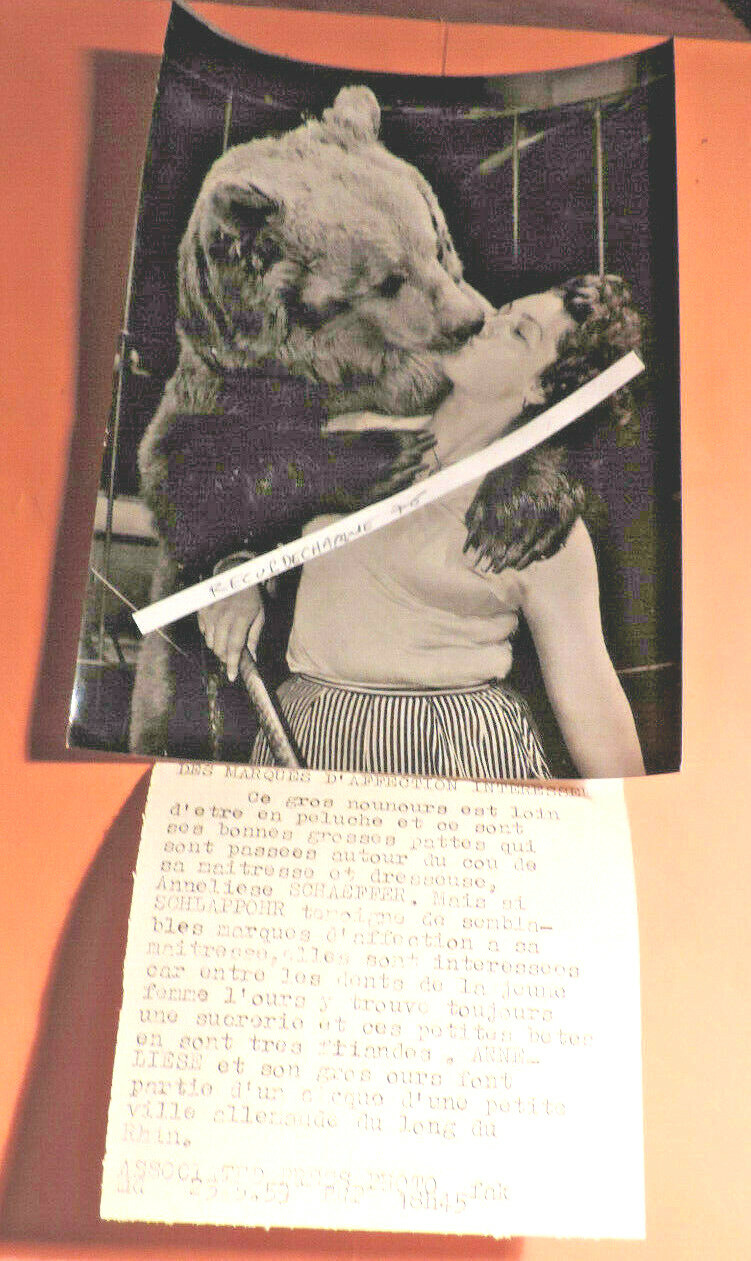 RECUPDECHARGUE 46
DES MARQUES D'AFFECTION INTERESSEE
Ce gros nounours est loin
d'etre en peluche et ce sont
ses bonnes grosses pattes qui
sont passees autour du cou de
sa maitresse et dresseuse,
Anneliese SCHAEFFER. Mais si
SCHLAPPOHR temoigne de sembla-
bles marques d'affection a sa
maitresse, elles sont interessees
car entre les dents de la jeune
femme l'ours y trouve toujours
une sucrerie et ces petites betes
en sont tres friandes. ANNE-
LIESE et son gros ours font
partie d'un cirque d'une petite
ville allemande du long du
Rhin.
ASSOCIATED PRESS PHOTO fak
du 18h45